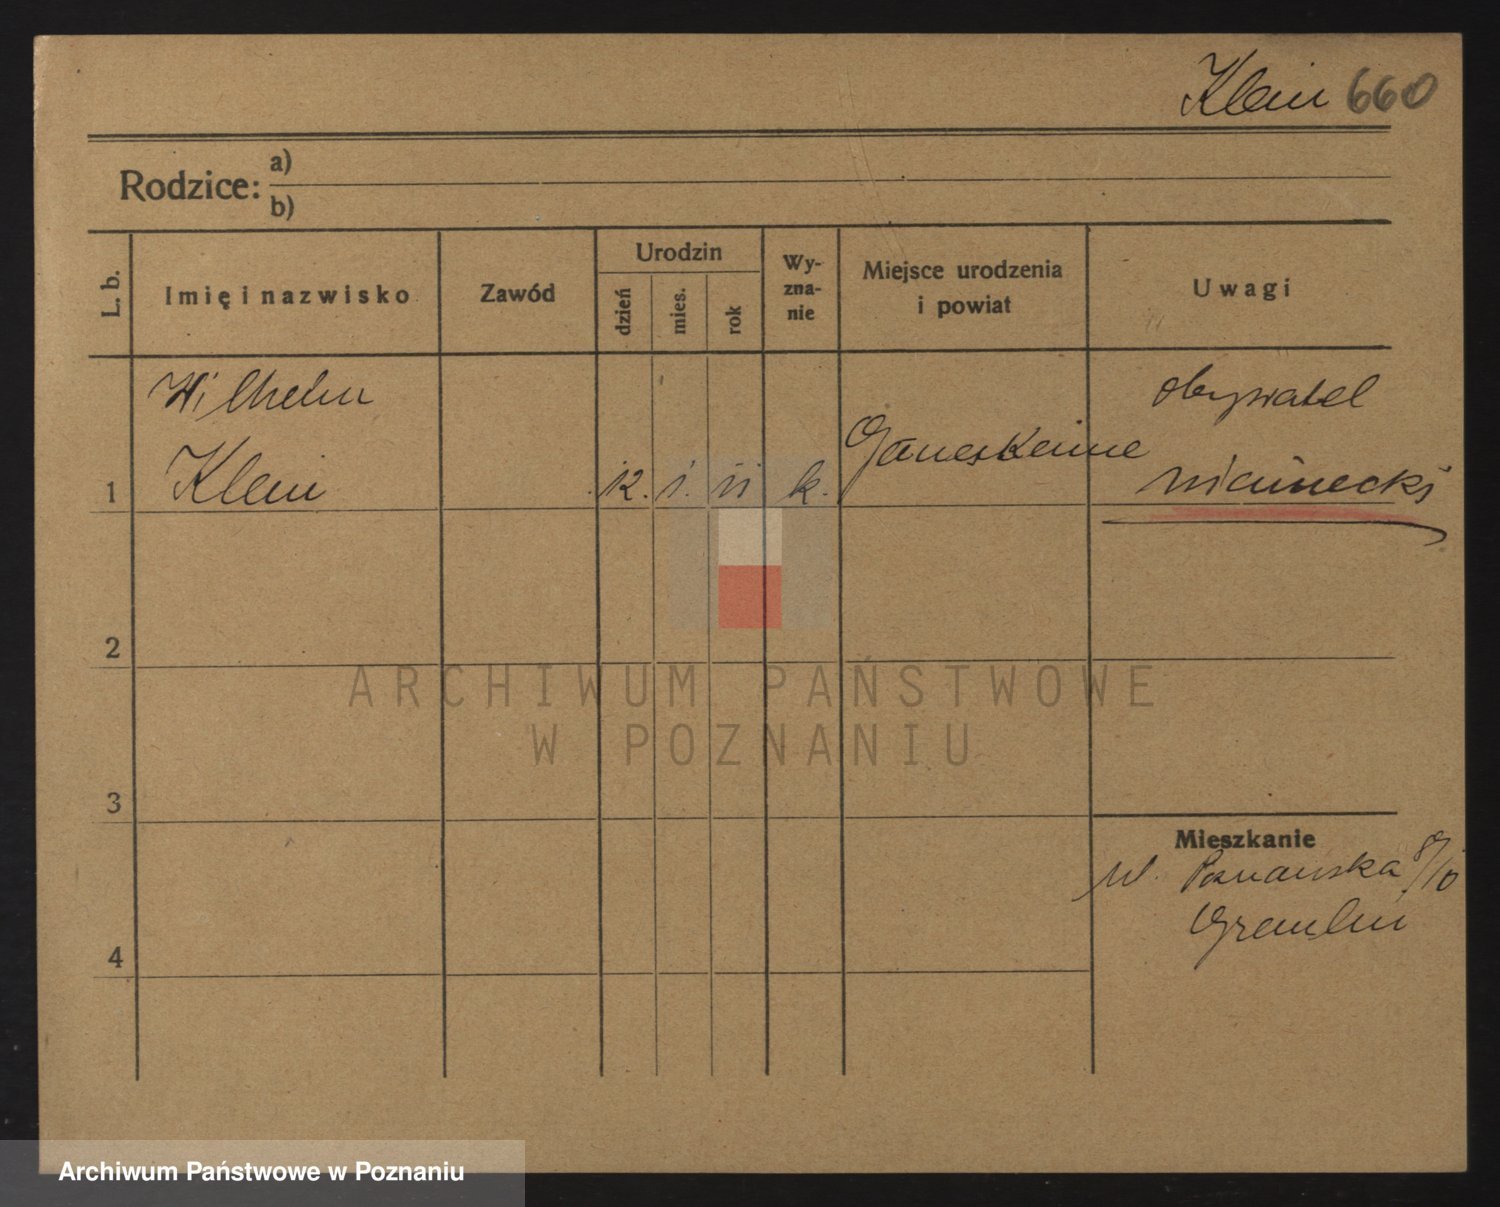 Klein 660
Rodzice: a)
b)
L. b.
Imię i nazwisko
Zawód
Urodzin
dzień
mies.
rok
Wy-
zna-
nie
Miejsce urodzenia
i powiat
Uwagi
Wilhelm
obywatel
1 Klein 12. 1. 11 k.
niemiecki
2
ARCHIWUM PAŃSTWOWE
W POZNANIU
3
Mieszkanie
ul. Poznańska 8/10
4
Archiwum Państwowe w Poznaniu